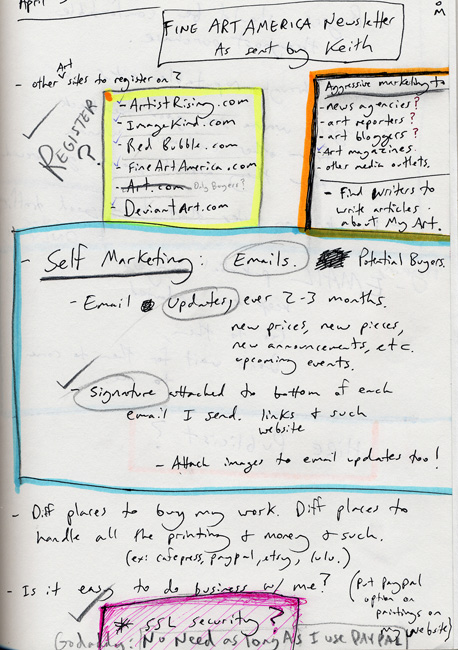 April
FINE ART AMERICA Newsletter
As sent by Keith
- other Art sites to register on?
REGISTER?
- ArtistRising.com
- ImageKind.com
- Red Bubble.com
- FineArtAmerica.com
- Art.com Only Buyers?
- DeviantArt.com
Aggressive marketing to
- news agencies?
- art reporters?
- art bloggers?
- Art magazines.
- other media outlets.
- Find writers to
write articles
about My Art.
- Self Marketing: Emails. Potential Buyers.
- Email updates, ever 2-3 months.
new prices, new pieces,
new announcements, etc.
upcoming events.
- Signature attached to bottom of each
email I send. links & such
website
- Attach images to email updates too!
- Diff places to buy my work. Diff places to
handle all the printing & money & such.
(ex: cafepress, paypal, etsy, lulu.)
- Is it easy to do business w/ me? (Put Paypal
option on
printings on
my website)
* SSL security?
Godaddy: No Need as long As I use PAYPAL